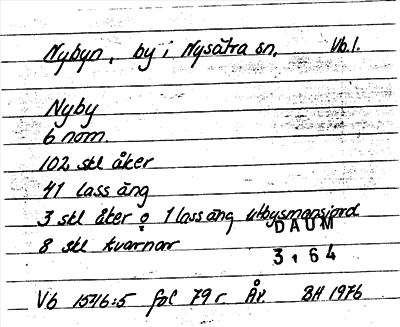 Nybyn, by i Nysätra sn, Vb.l.
Nyby
6 nom.
102 skl åker
41 lass äng
3 skl åker o 1 lass äng utbysmansjord
DAUM
8 skl kvarnar
3,64
Vb 1546:5 fol 79r Åv BH 1976